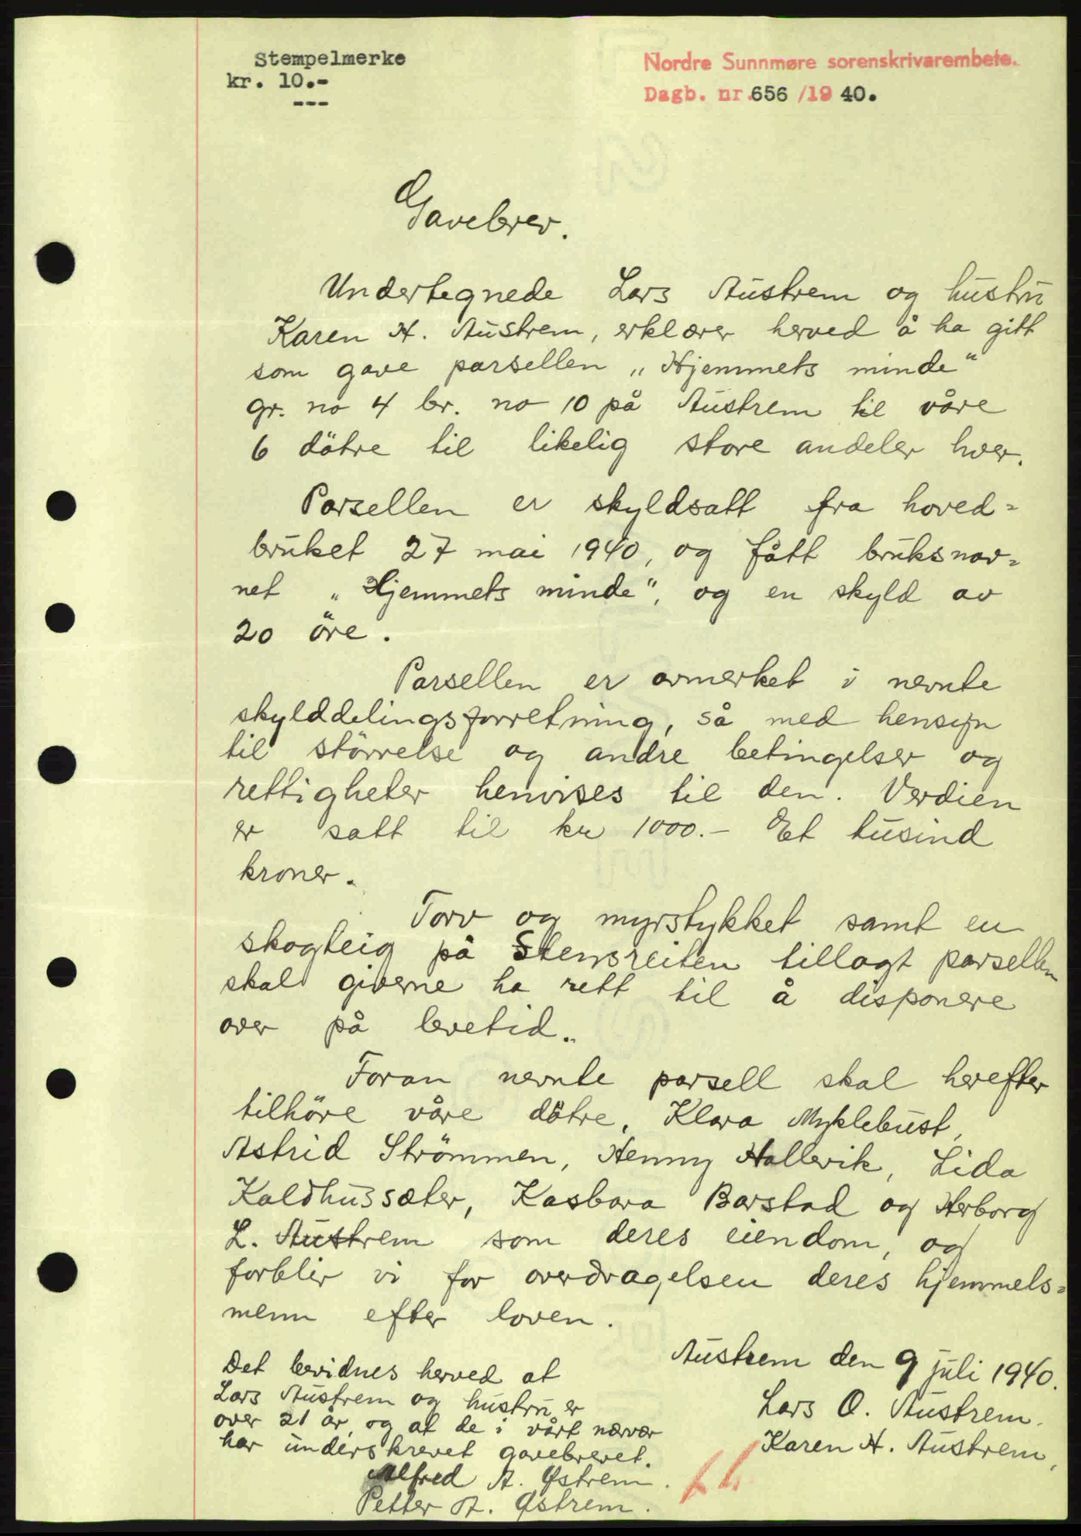 Stempelmerke
kr. 10.-
---
Nordre Sunnmøre sorenskrivarembete.
Dagb. nr. 656 /19 40.
Gavebrev.
Undertegnede Lars Austrem og hustru
Karen H. Austrem, erklærer herved å ha gitt
som gave parsellen „Hjemmets minde"
gr. no 4 br. no 10 på Austrem til våre
6 dötre til likelig store andeler hver.
Parsellen er skyldsatt fra hoved=
bruket 27 mai 1940, og fått bruksnav=
net „Hjemmets minde", og en skyld av
20 öre.
Parsellen er avmerket i nevnte
skylddelingsforretning, så med hensyn
til störrelse og andre betingelser og
rettigheter henvises til den. Verdien
er satt til kr 1000.- Et tusind
kroner.
Torv og myrstykket samt en
skogteig på Stensreiten tillagt parsellen
skal giverne ha rett til å disponere
over på levetid.
Foran nevnte parsell skal herefter
tilhöre våre dötre, Klara Myklebust,
Astrid Strömmen, Henny Hallevik, Lida
Kaldhussæter, Kasbara Barstad og Herborg
L. Austrem som deres eiendom, og
forblir vi for overdragelsen deres hjemmels=
menn efter loven.
Austrem den 9 juli 1940.
Lars O. Austrem.
Karen H. Austrem.
Det bevidnes herved at
Lars Austrem og hustru er
over 21 år, og at de i vårt nærvær
har underskrevet gavebrevet.
Alfred A. Østrem.
Petter A. Østrem.